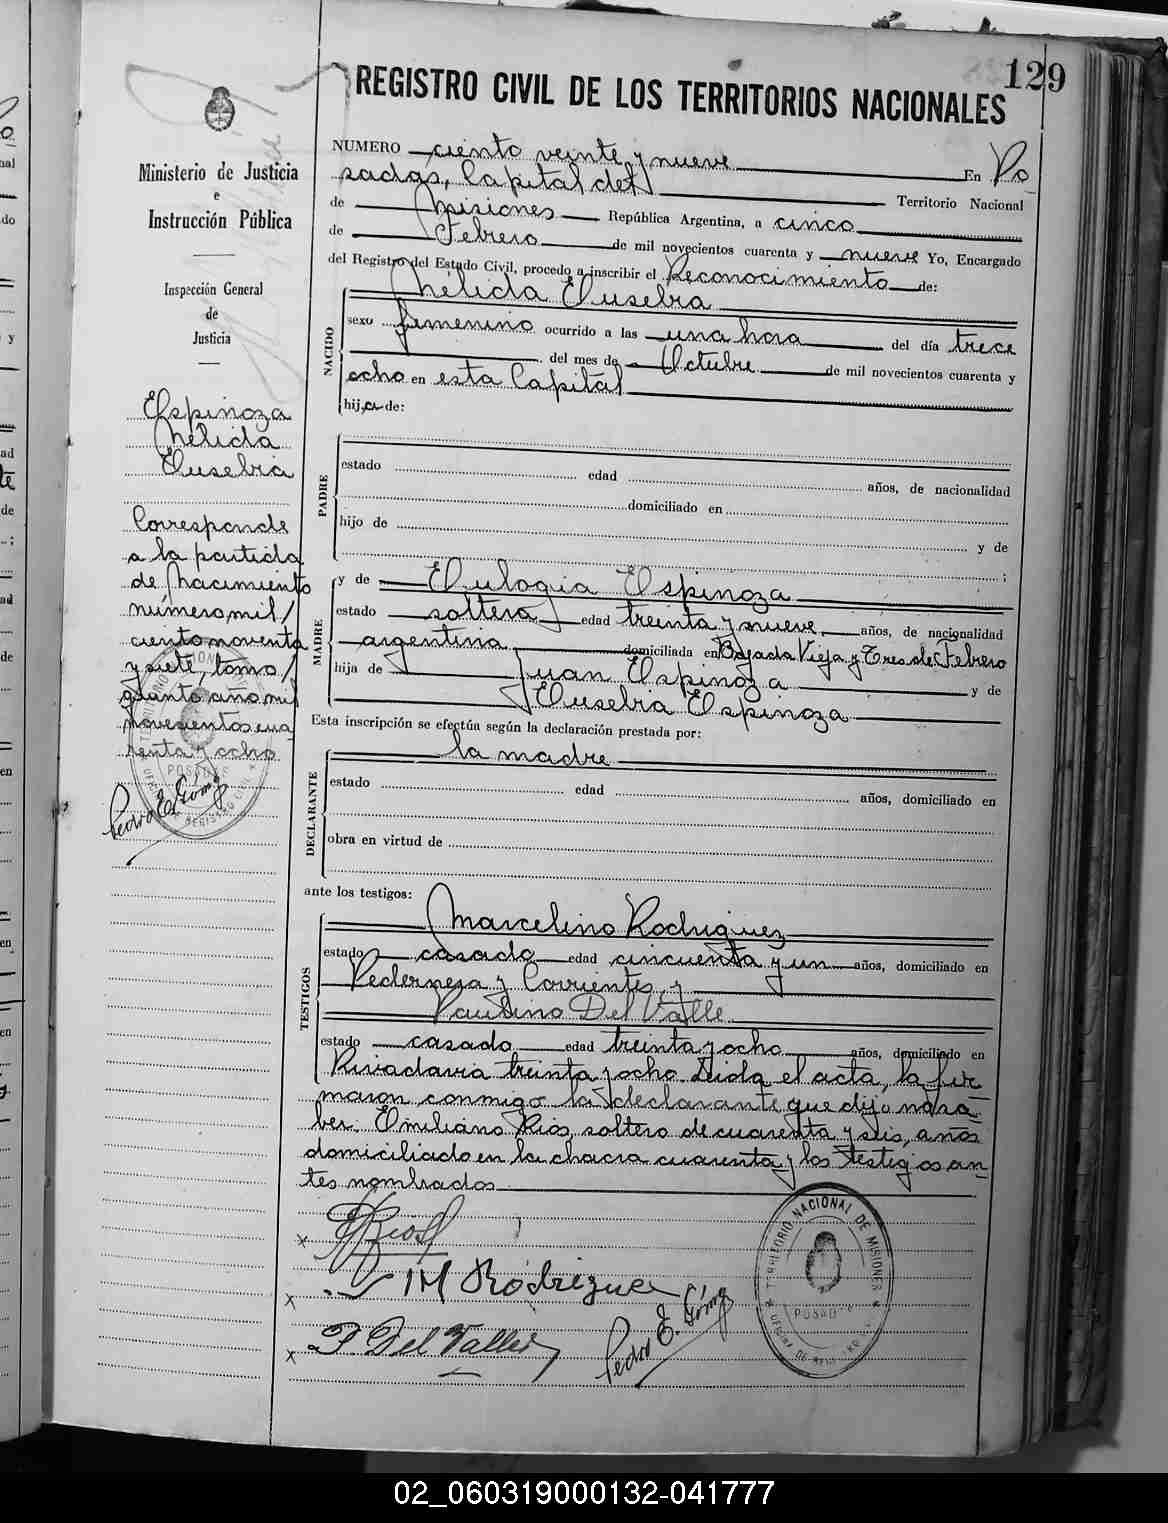 129
REGISTRO CIVIL DE LOS TERRITORIOS NACIONALES
Ministerio de Justicia
e
Instrucción Pública
Inspección General
de
Justicia
Espinoza
Nelida
Eusebia
Corresponde
a la partida
de Nacimiento
número mil/
ciento noventa
y siete, tomo/
quinto año mil
novecientos cua-
renta y ocho
Pedro E. Gómez
NUMERO ciento veinte y nueve En Po
sadas, Capital del Territorio Nacional
de Misiones República Argentina, a cinco
de Febrero de mil novecientos cuarenta y nueve Yo, Encargado
del Registro del Estado Civil, procedo a inscribir el Reconocimiento de:
NACIDO
Nelida Eusebia
sexo femenino ocurrido a las una hora del día trece
del mes de Octubre de mil novecientos cuarenta y
ocho en esta Capital
hija de:
PADRE
estado edad años, de nacionalidad
domiciliado en
hijo de y de
;
MADRE
y de Eulogia Espinoza
estado soltera edad treinta y nueve años, de nacionalidad
argentina domiciliada en Bajada Vieja y Tres de Febrero
hija de Juan Espinoza y de
Eusebia Espinoza
Esta inscripción se efectúa según la declaración prestada por:
DECLARANTE
la madre
estado edad años, domiciliado en
obra en virtud de
ante los testigos:
TESTIGOS
Marcelino Rodriguez
estado casado edad cincuenta y un años, domiciliado en
Pedernera y Corrientes, y
Paulino Del Valle
estado casado edad treinta y ocho años, domiciliado en
Rivadavia treinta y ocho. Leida el acta, la fir
maron conmigo la declarante que dijo no sa-
ber. Emiliano Rios, soltero de cuarenta y seis, años
domiciliado en la chacra cuarenta y los testigos an-
tes nombrados
x Rios
x M Rodriguez
x P. Del Valle
Pedro E. Gómez
TERRITORIO NACIONAL DE MISIONES
POSADAS
02_060319000132-041777